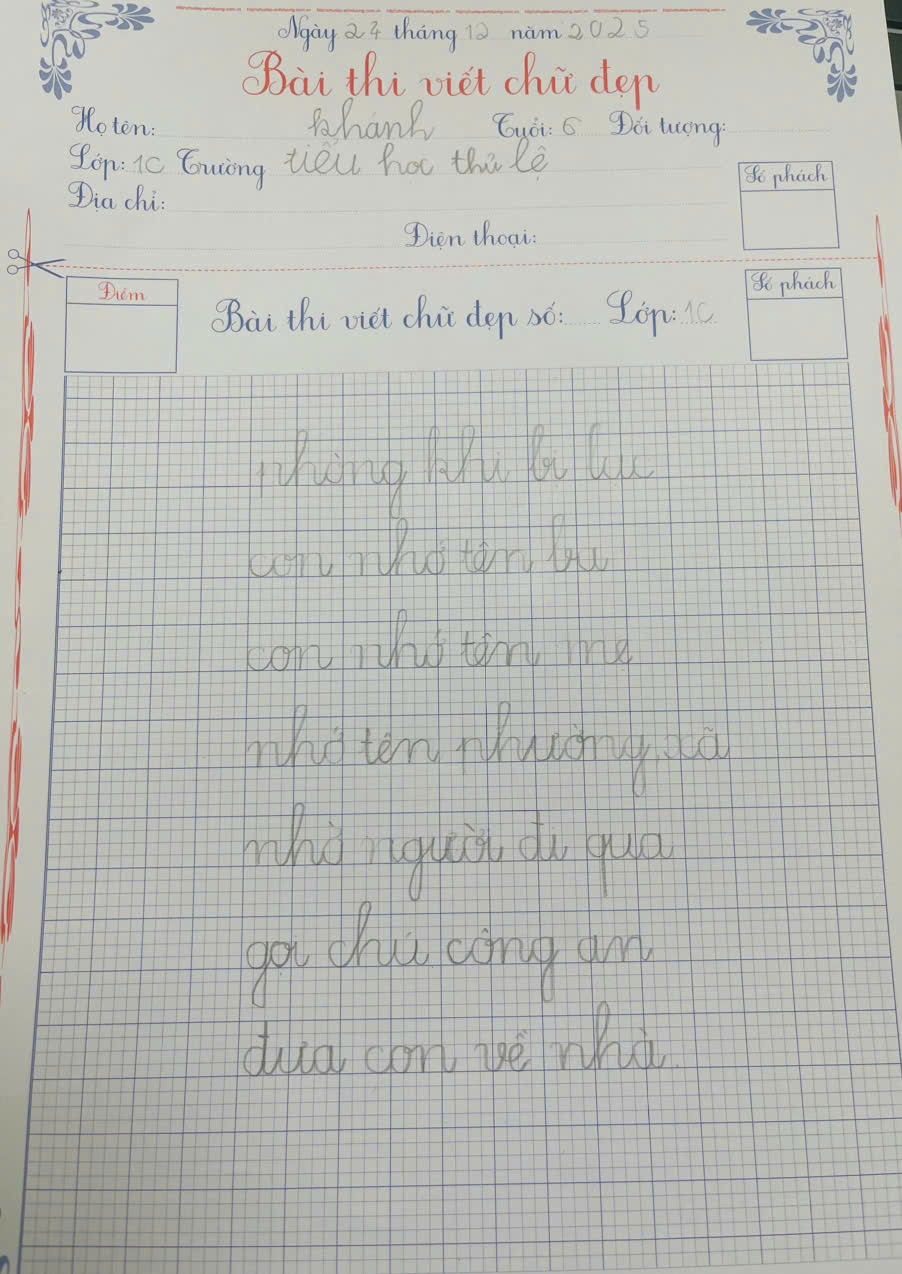 Ngày 24 tháng 12 năm 2025
Bài thi viết chữ đẹp
Họ tên: khánh Tuổi: 6 Đối tượng:
Lớp: 1C Trường tiểu học thủ lệ
Số phách
Địa chỉ:
Điện thoại:
Điểm
Bài thi viết chữ đẹp số: Lớp: 1C
Số phách
phòng khi bị lạc
con nhớ tên bu
con nhớ tên mẹ
nhớ tên phường, xã
nhờ người đi qua
gọi chú công an
đưa con về nhà.